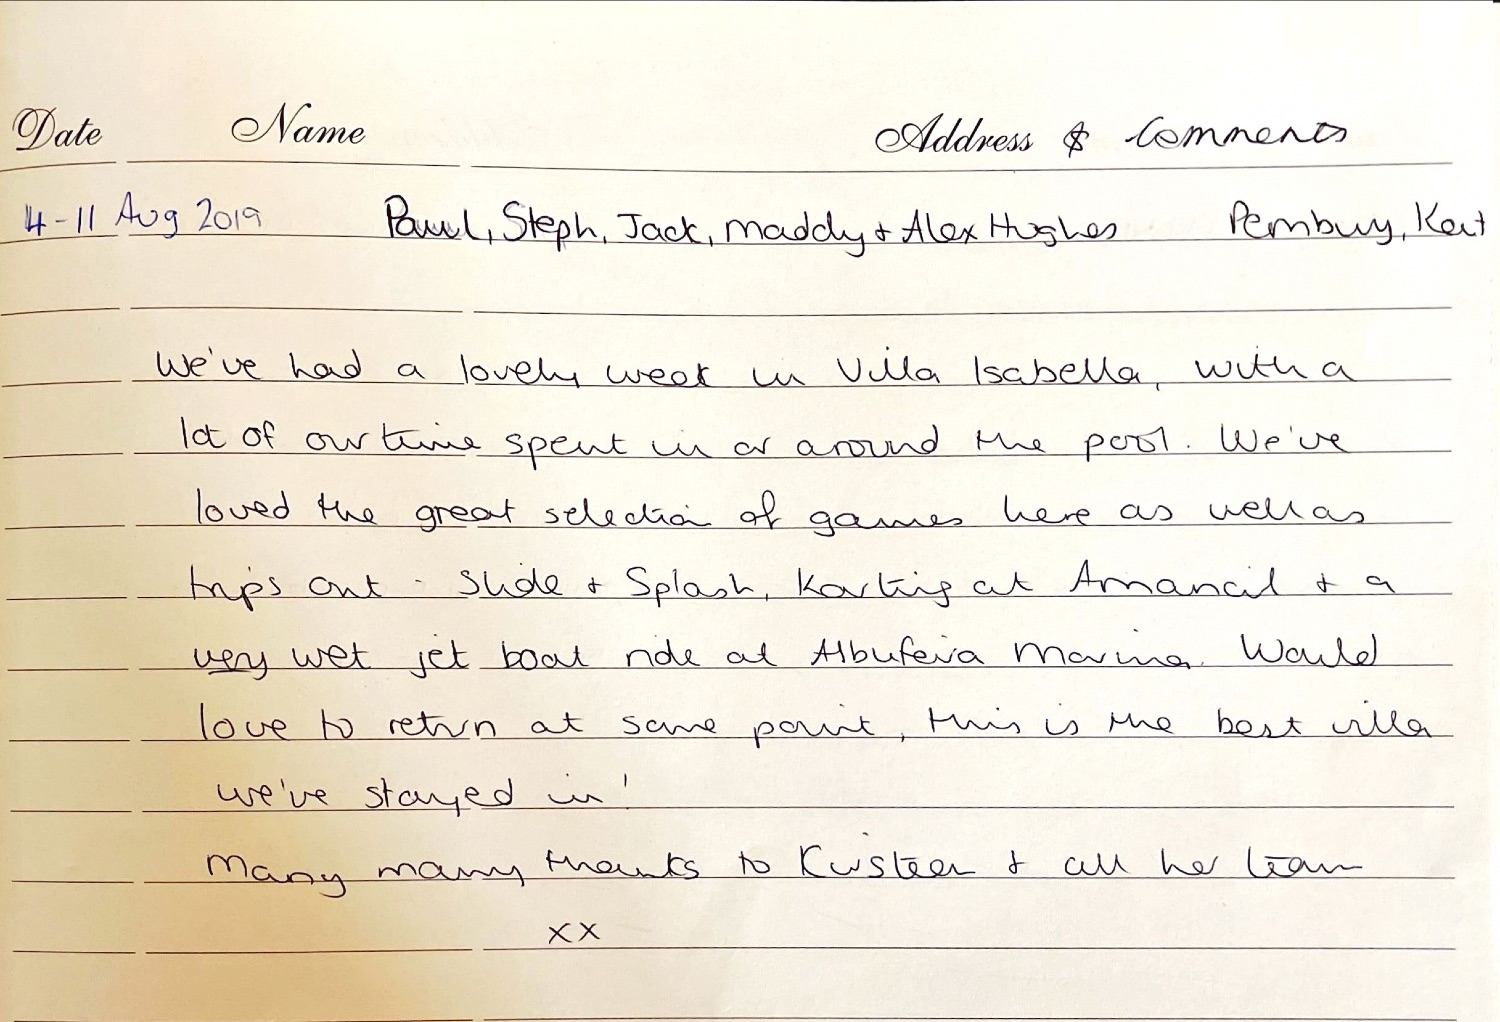 Date Name Address & Comments
4-11 Aug 2019 Paul, Steph, Jack, Maddy + Alex Hughes Pembury, Kent
We've had a lovely week in Villa Isabella, with a
lot of our time spent in or around the pool. We've
loved the great selection of games here as well as
trips out - Slide + Splash, Karting at Amancil + a
very wet jet boat ride at Albufeira Marina. Would
love to return at some point, this is the best villa
we've stayed in!
Many many thanks to Kirsteen + all her team
xx